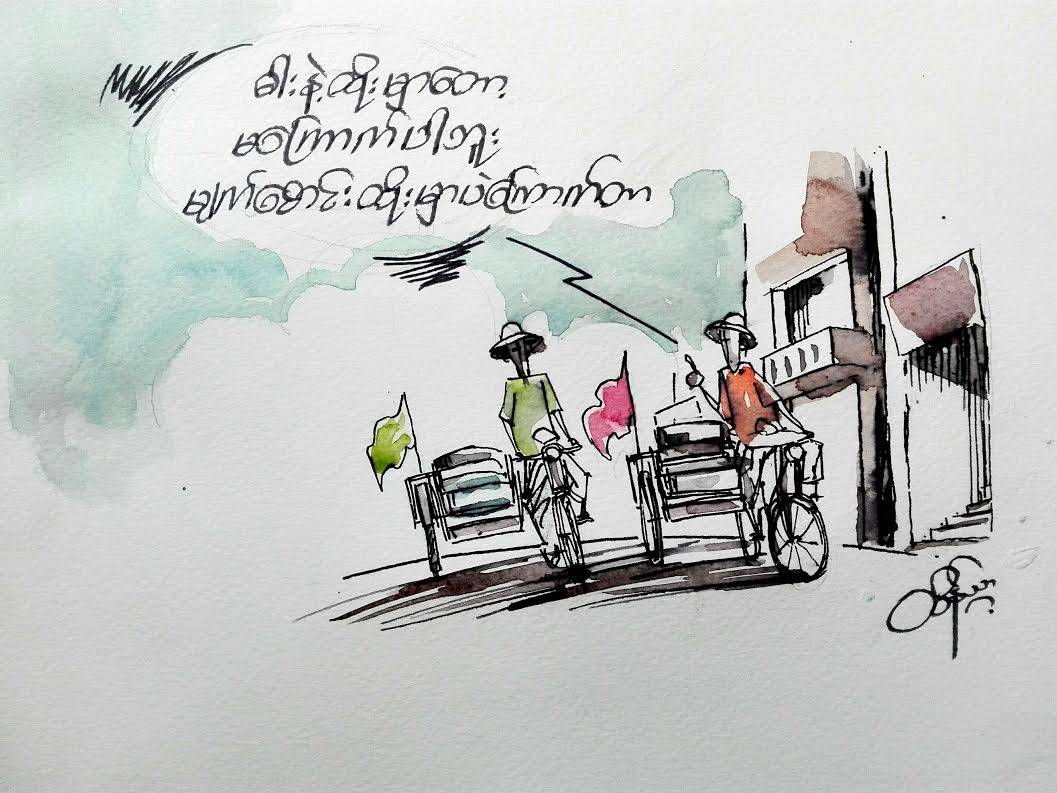 ဓါးနဲ့ထိုးမှာတော့
မကြောက်ပါဘူး
မျက်စောင်းထိုးမှာပဲကြောက်တာ